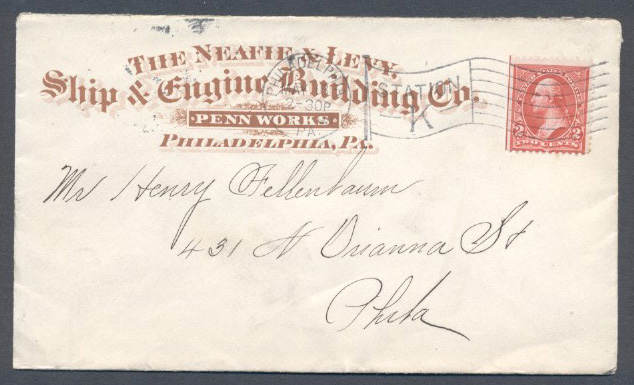 THE NEAFIE & LEVY.
Ship & Engine Building Co.
PENN WORKS
PHILADELPHIA, PA.
PHILADELPHIA
2-30P
PA.
STATION
K
2 2
TWO CENTS
Mr Henry Fellenbaum
431 N Orianna St
Phila